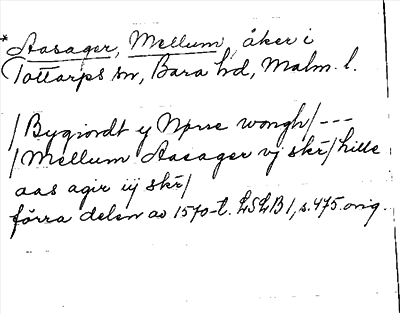 * Aasager, Mellum, åker i
Tottarps sn, Bara hd, Malm. l.
/Bygiordt ij Nørre wongh/---
/Mellum Aasager vj skr/hille
aas agir iij skr/
förra delen av 1570-t. LSLB 1, s. 475. orig.